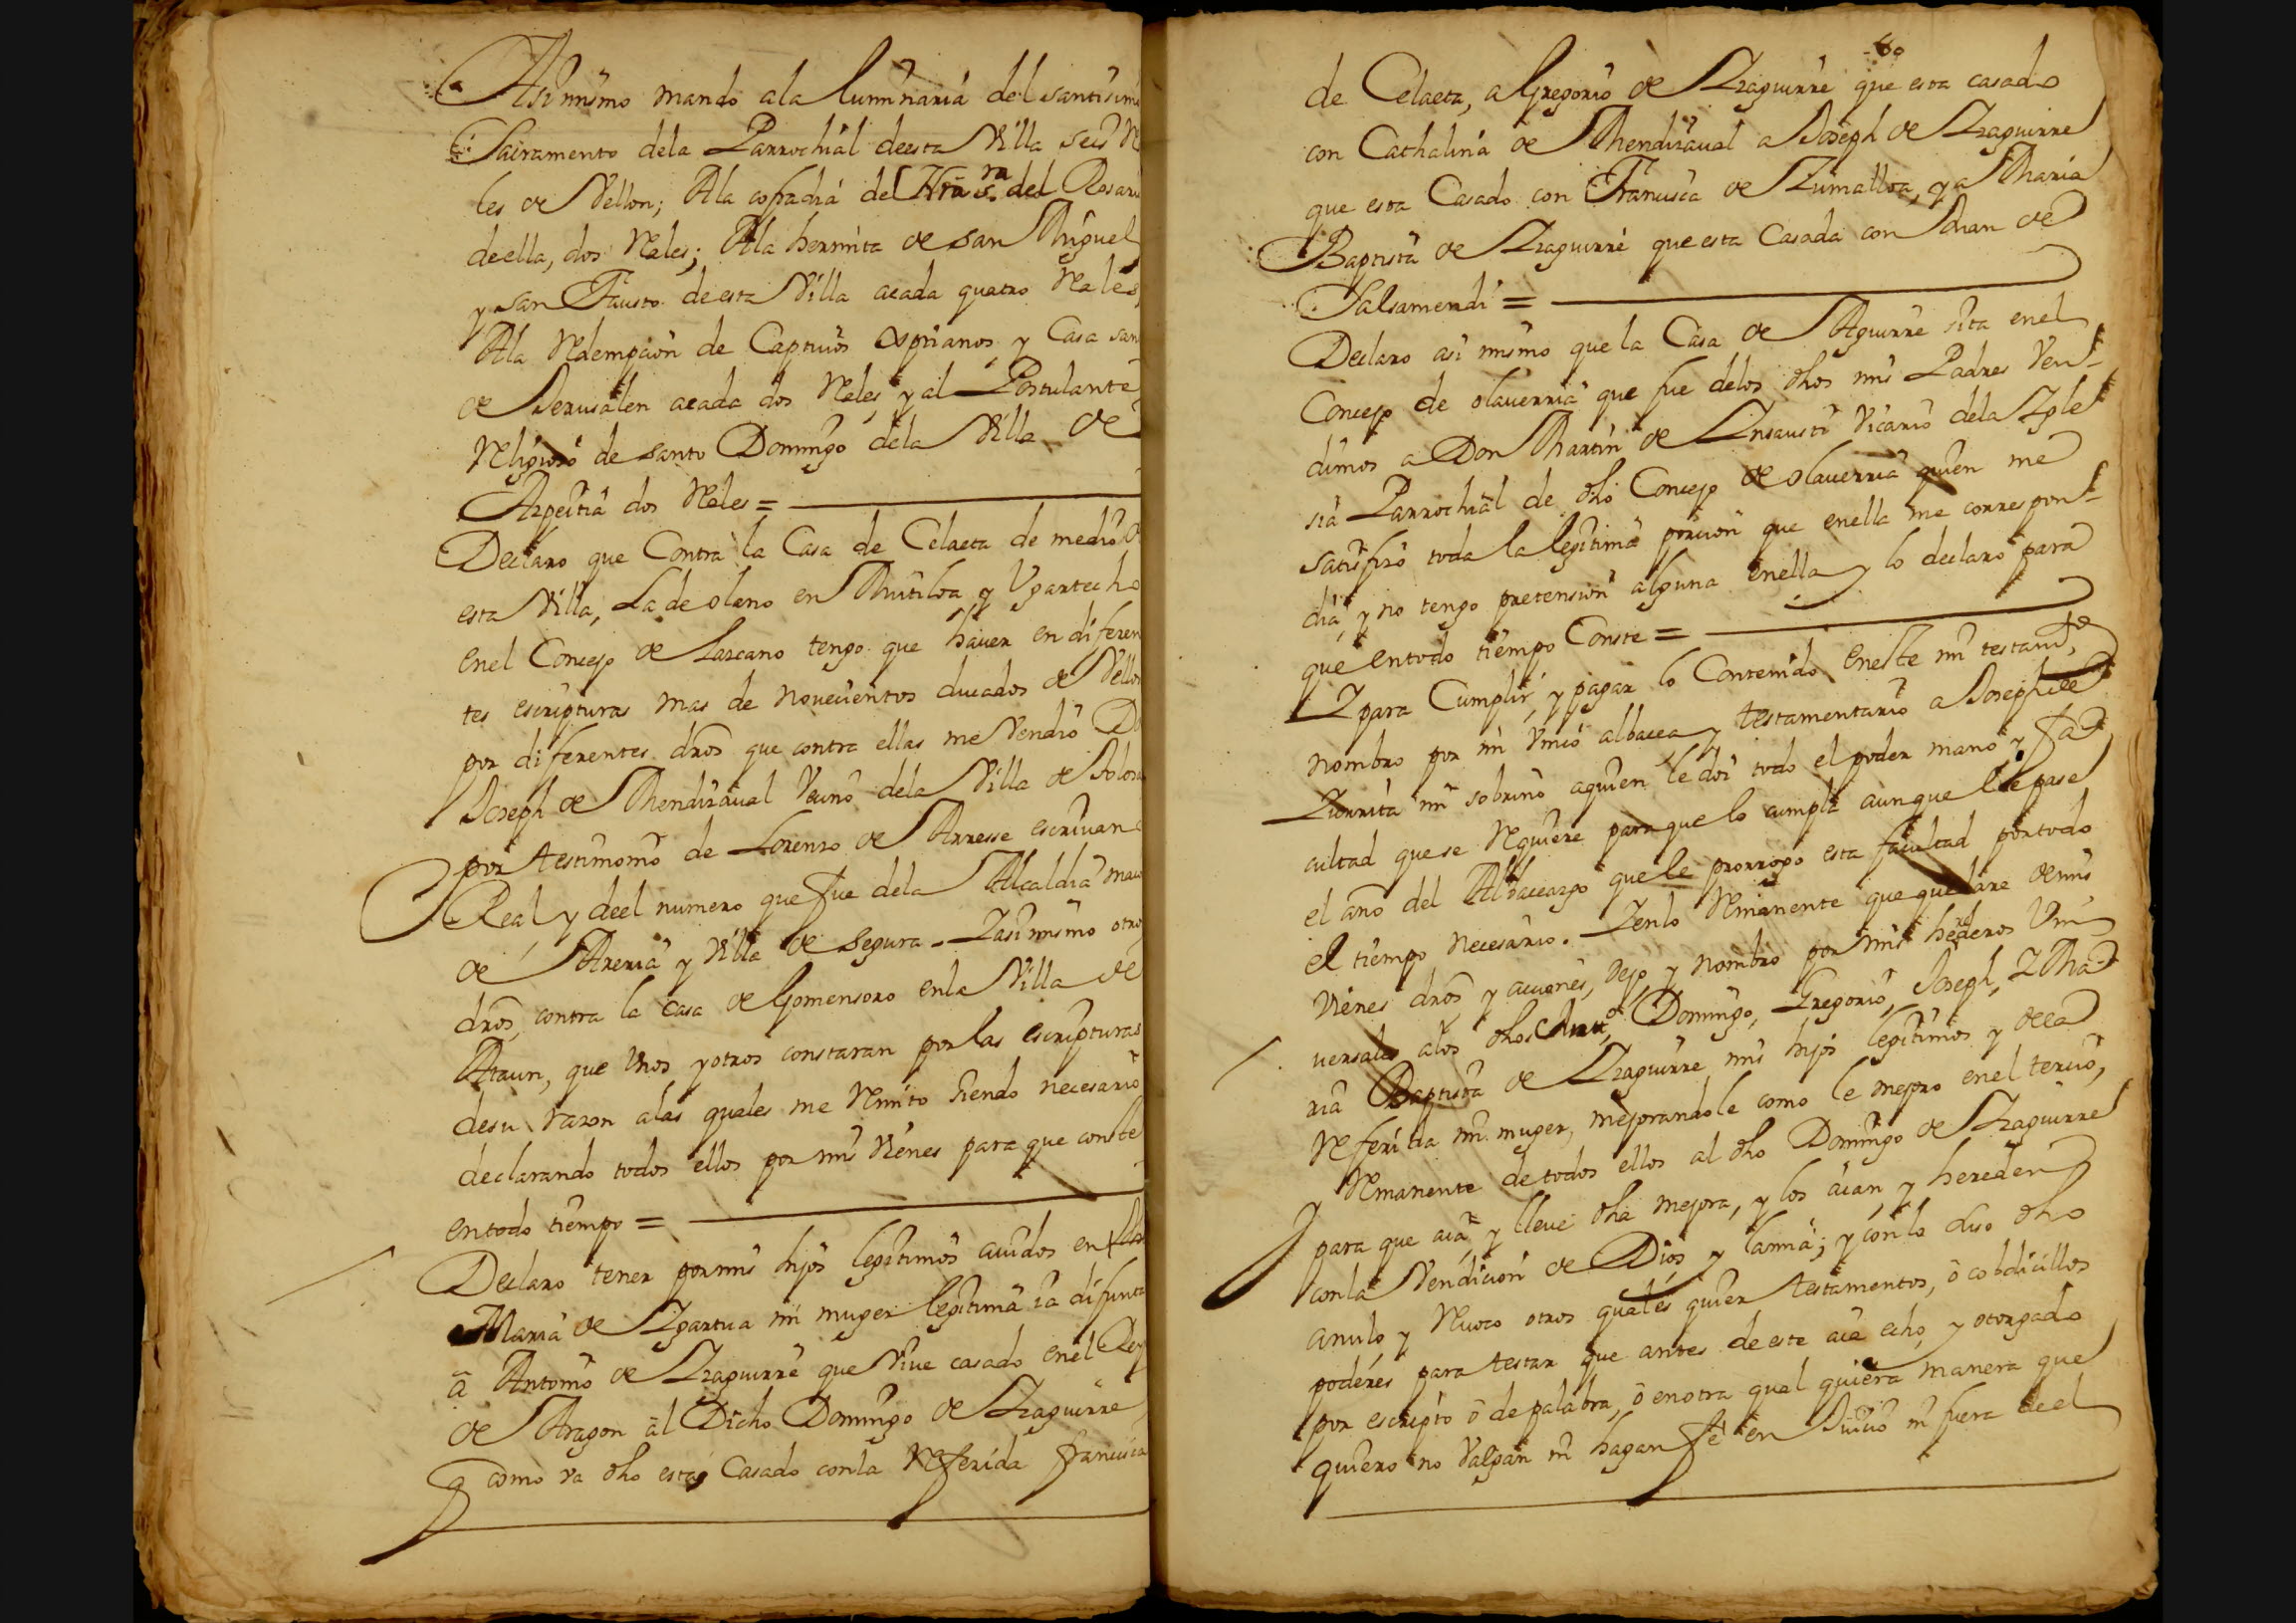 Asimismo mando ala luminaria del santisimo
Sacramento dela Parrochial deesta Villa seis Rea
les de Vellon; Ala cofradia de Nra Sra del Rosario
deella, dos Reales; Ala hermita de san Miguel
y san Fausto deesta Villa acada quatro Reales,
Ala Redempcion de Captiuos Xptianos y Casa san
de Jerusalen acada dos Reales y al Postulante
Religioso de santo Domingo dela Villa de
Azpeitia dos Reales =
Declaro que Contra la Casa de Celaeta de medio
esta Villa, La de olano en Mutiloa y Vgartecho
enel Concejo de Lazcano tengo que hauer en diferen
tes escripturas mas de novecientos ducados de Vellon
por diferentes dros que contra ellas me Vendio
Joseph de Mendizaual Vecino dela Villa de Tolosa
por testimonio de Lorenzo de Arresse escriuano
Real y deel numero que fue dela Alcaldia maior
de Areria y Villa de Segura. Y asimismo otros
dros contra la Casa de Gomensoro enla Villa de
Ataun, que Vnos y otros constaran por las escripturas
desu razon alas quales me Remito siendo necesario
declarando todos ellos por mis Vienes para que conste
entodo tiempo =
Declaro tener por mis hijos legitimos auidos en
Maria de Ygartua mi muger legitima ia difunta
a Antonio de Yzaguirre que Viue casado enel Rey
de Aragon al Dicho Domingo de Yzaguirre
q como va dho esta Casado conla Referida francisca
60
de Celaeta, a Gregorio de Yzaguirre que esta casado
con Cathalina de Mendizaual a Joseph de Yzaguirre
que esta Casado con Francisca de Zumalloa, y a Maria
Baptista de Yzaguirre que esta Casada con Juan de
Salsamendi =
Declaro asi mismo que la Casa de Aguirre sita enel
Concejo de olauerria que fue delos dhos mis Padres Ven-
dimos a Don Martin de Ynsausti Vicario dela Ygle
sia Parrochial de dho Concejo de olauerria quien me
satisfizo toda la legitima porcion que enella me correspon-
dia, y no tengo pretension alguna enella y lo declaro para
que entodo tiempo Conste =
Y para Cumplir, y pagar lo Contenido eneste mi testamto
nombro por mi Vnico albacea y testamentario a Joseph de
Zurrita mi sobrino aquien le doi todo el poder mano y fa
cultad que se Requiere para que lo cumpla aunque se le pase
el año del Albaceazgo que le prorrogo esta facultad por todo
el tiempo necesario. Y enlo Remanente que quedare de mis
Vienes dros y acciones, dejo y nombro por mis herederos Vni
uersales alos dhos Antto, Domingo, Gregorio, Joseph, Y Ma
ria Baptista de Yzaguirre mis hijos legitimos y de la
Referida mi muger, mejorandole como le mejoro enel tercio,
y Remanente de todos ellos al dho Domingo de Yzaguirre
para que aia, y lleue dha mejora, y los aian, y hereden
conla Vendicion de Dios y la mia; y con lo dho
anulo y Reuoco otros quales quier testamentos, ô cobdicillos
poderes para testar que antes de este aia echo, y otorgado
por escripto ô de palabra, ô en otra qual quiera manera que
quiero no Valgan ni hagan fê en Juicio ni fuera deel